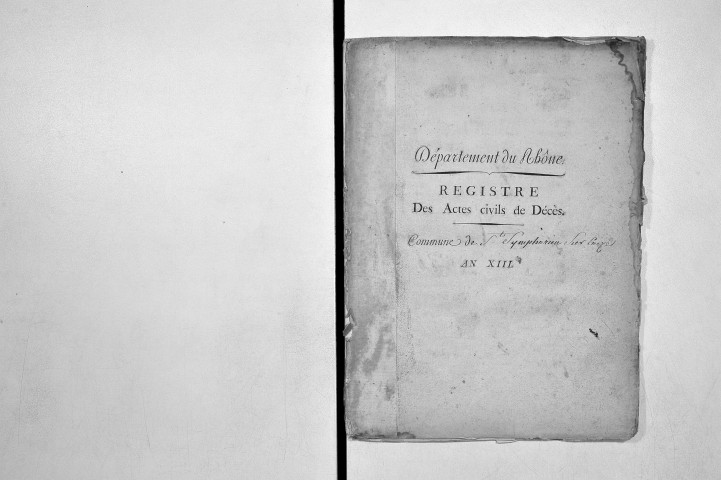 Département du Rhône.
REGISTRE
Des Actes civils de Décès.
Commune de St Symphorien Sur Coize
AN XIII.